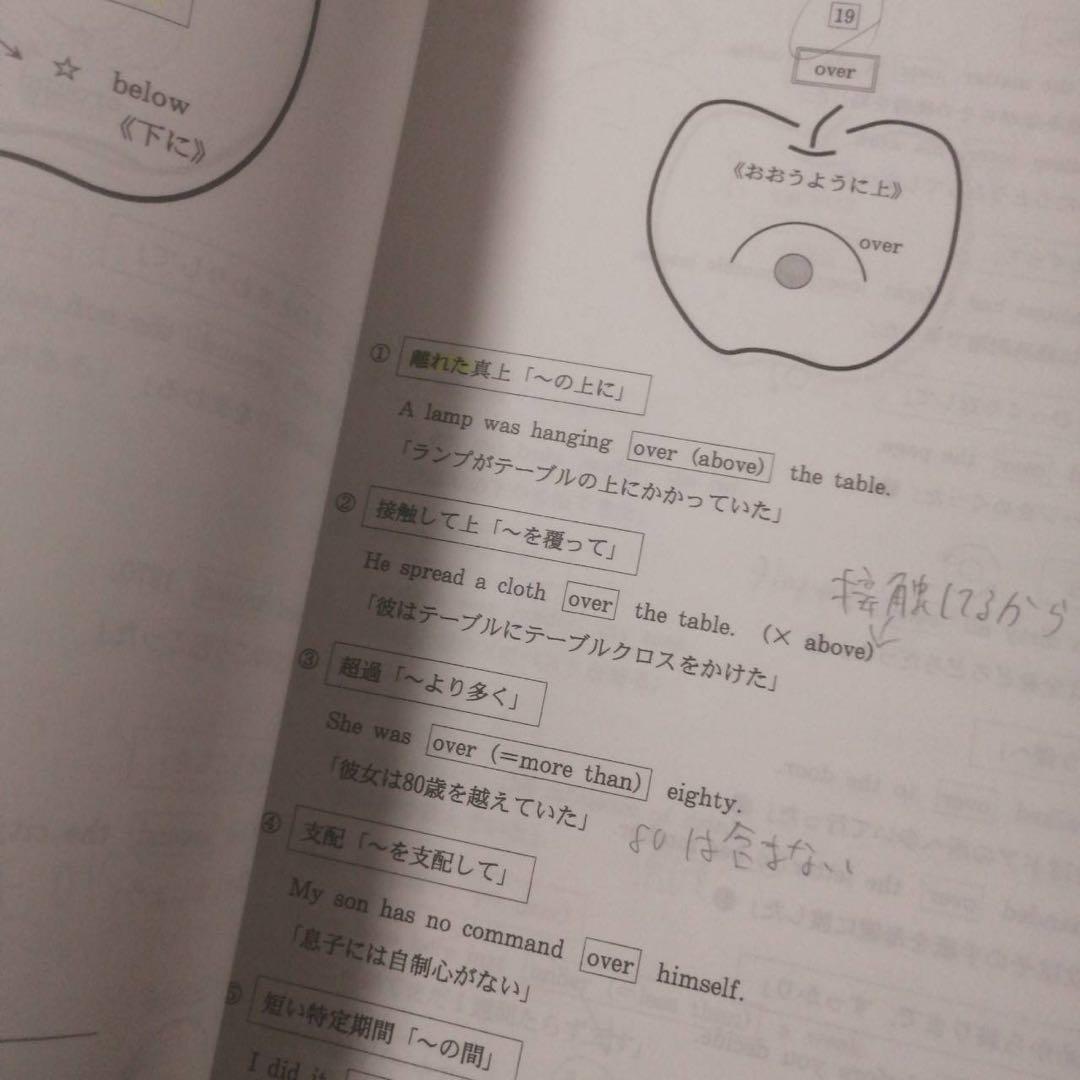 ☆ below
《下に》
19
over
《おおうように上》
over
① 離れた真上「～の上に」
A lamp was hanging over (above) the table.
「ランプがテーブルの上にかかっていた」
② 接触して上「～を覆って」
He spread a cloth over the table. (× above)
接触してるから
「彼はテーブルにテーブルクロスをかけた」
③ 超過「～より多く」
She was over (＝more than) eighty.
「彼女は80歳を越えていた」
80は含まない
④ 支配「～を支配して」
My son has no command over himself.
「息子には自制心がない」
⑤ 短い特定期間「～の間」
I did it